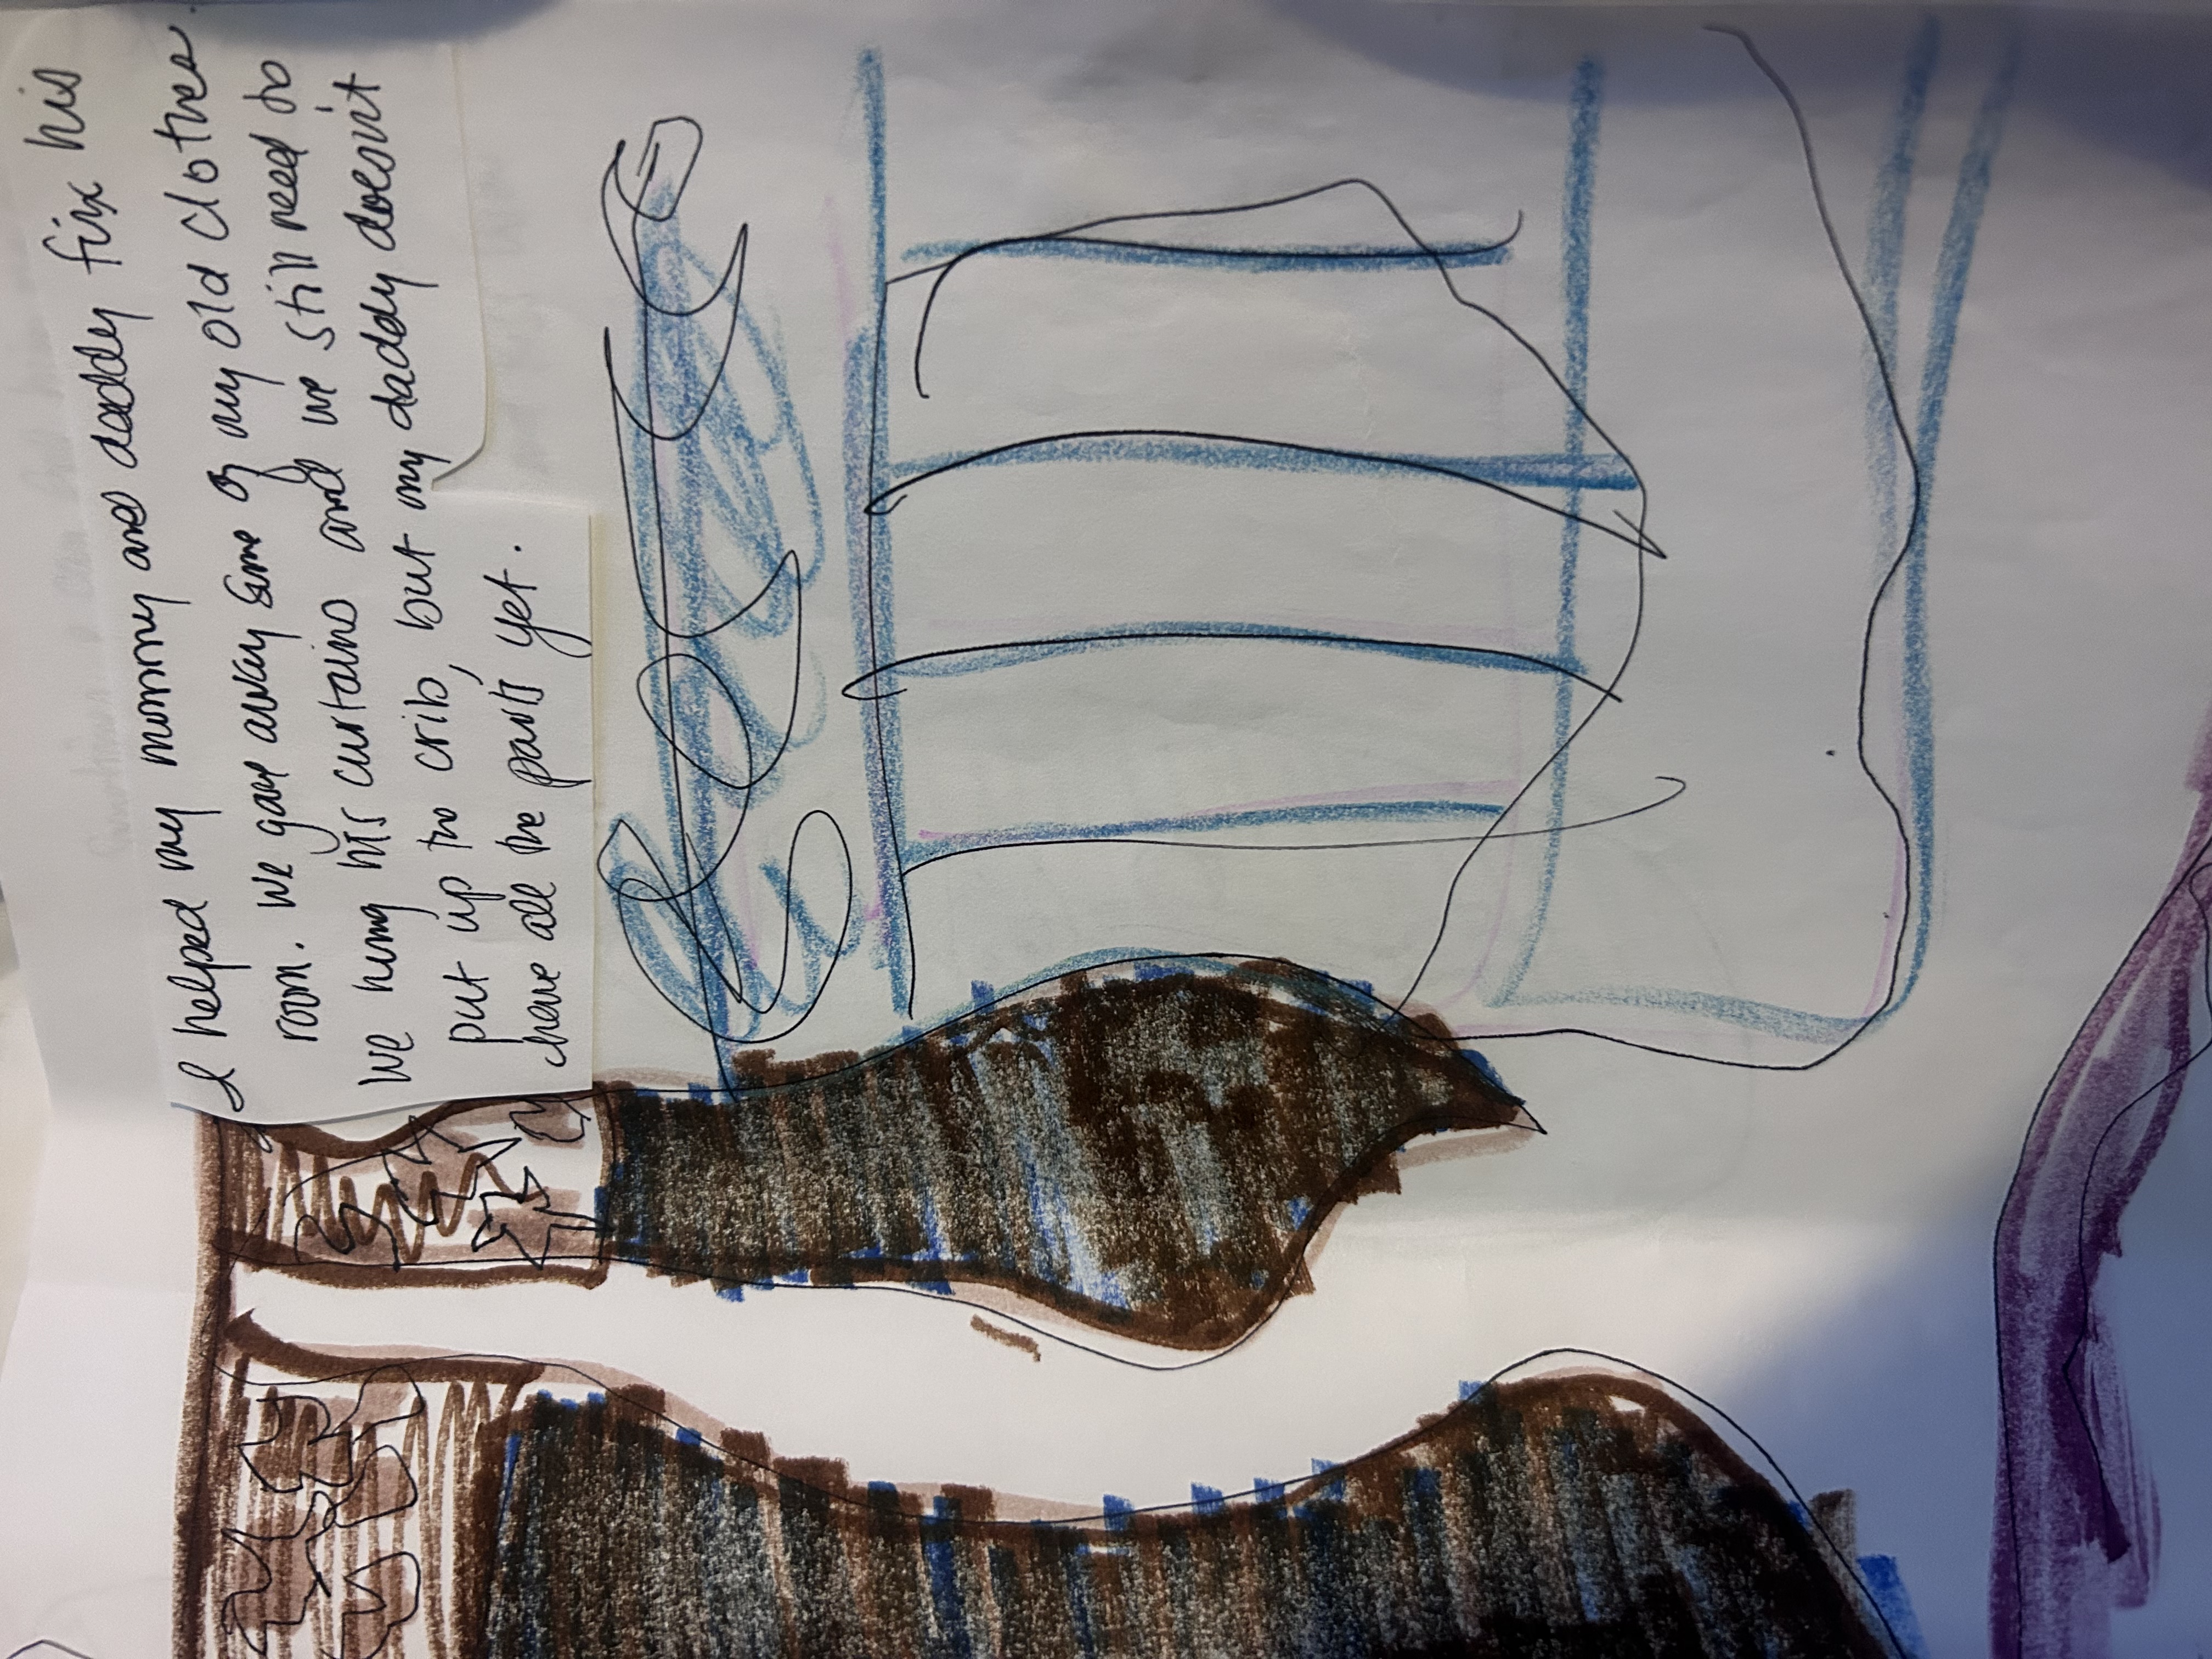 I helped my mommy and daddy fix his
room. We gave away some of my old clothes.
We hung his curtains and we still need to
put up the crib, but my daddy doesn't
have all the parts yet.